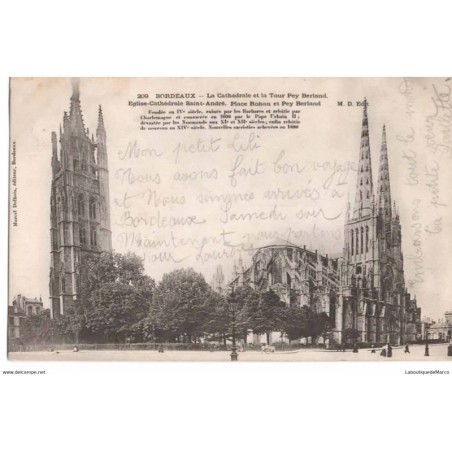 209 BORDEAUX. – La Cathédrale et la Tour Pey Berland.
Eglise-Cathédrale Saint-André. Place Rohan et Pey Berland M. D. Edit
Fondée en IVe siècle, ruinée par les Barbares et rebâtie par
Charlemagne et consacrée en 1096 par le Pape Urbain II ;
dévastée par les Normands aux XIe et XIIe siècles ; enfin rebâtie
de nouveau en XIVe siècle. Nouvelles sacristies achevées en 1880
Marcel Delboy, éditeur, Bordeaux.
Mon petit Leli
Nous avons fait bon voyage
et Nous sommes arrivés à
Bordeaux Samedi soir
Maintenant nous partons
pour Lourdes
www.delcampe.net
LaboutiquedeMarco